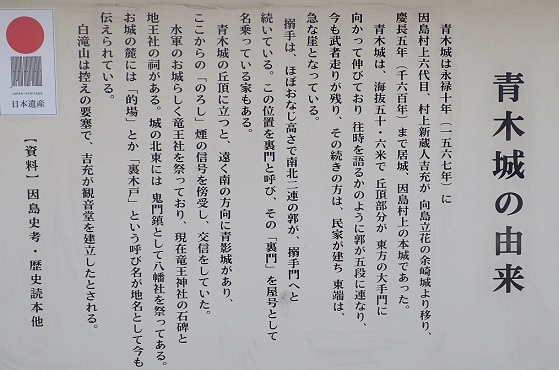 青木城の由来
青木城は永禄十年（一五六七年）に
因島村上六代目、村上新蔵人吉充が 向島立花の余崎城より移り、
慶長五年（一千六百年）まで居城、因島村上の本城であった。
青木城は、海抜五十・六米で 丘頂部分が 東方の大手門に
向かって伸びており 往時を語るかのように郭が五段に連なり、
今も武者走りが残り、その続きの方は、民家が建ち 東端は、
急な崖となっている。
搦手は、ほぼおなじ高さで南北二連の郭が、搦手門へと
続いている。この位置を裏門と呼び、その「裏門」を屋号として
名乗っている家もある。
青木城の丘頂に立つと、遠く南の方向に青影城があり、
ここからの「のろし」煙の信号を傍受し、交信をしていた。
水軍のお城らしく竜王社を祭っており、現在竜王神社の石碑と
地王社の祠がある。城の北東には 鬼門鎮として八幡社を祭ってある。
お城の麓には「的場」とか「裏木戸」という呼び名が地名として今も
伝えられている。
白滝山は控えの要塞で、吉充が観音堂を建立したとされる。
【資料】因島史考・歴史読本他
JAPAN HERITAGE
日本遺産